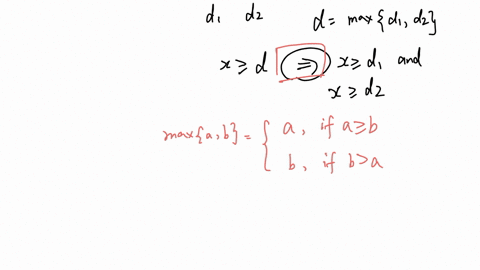 d1 d2 d = max{d1, d2}
x ≥ d ⇒ x ≥ d1 and
x ≥ d2
max{a, b} = { a, if a ≥ b
b, if b > a